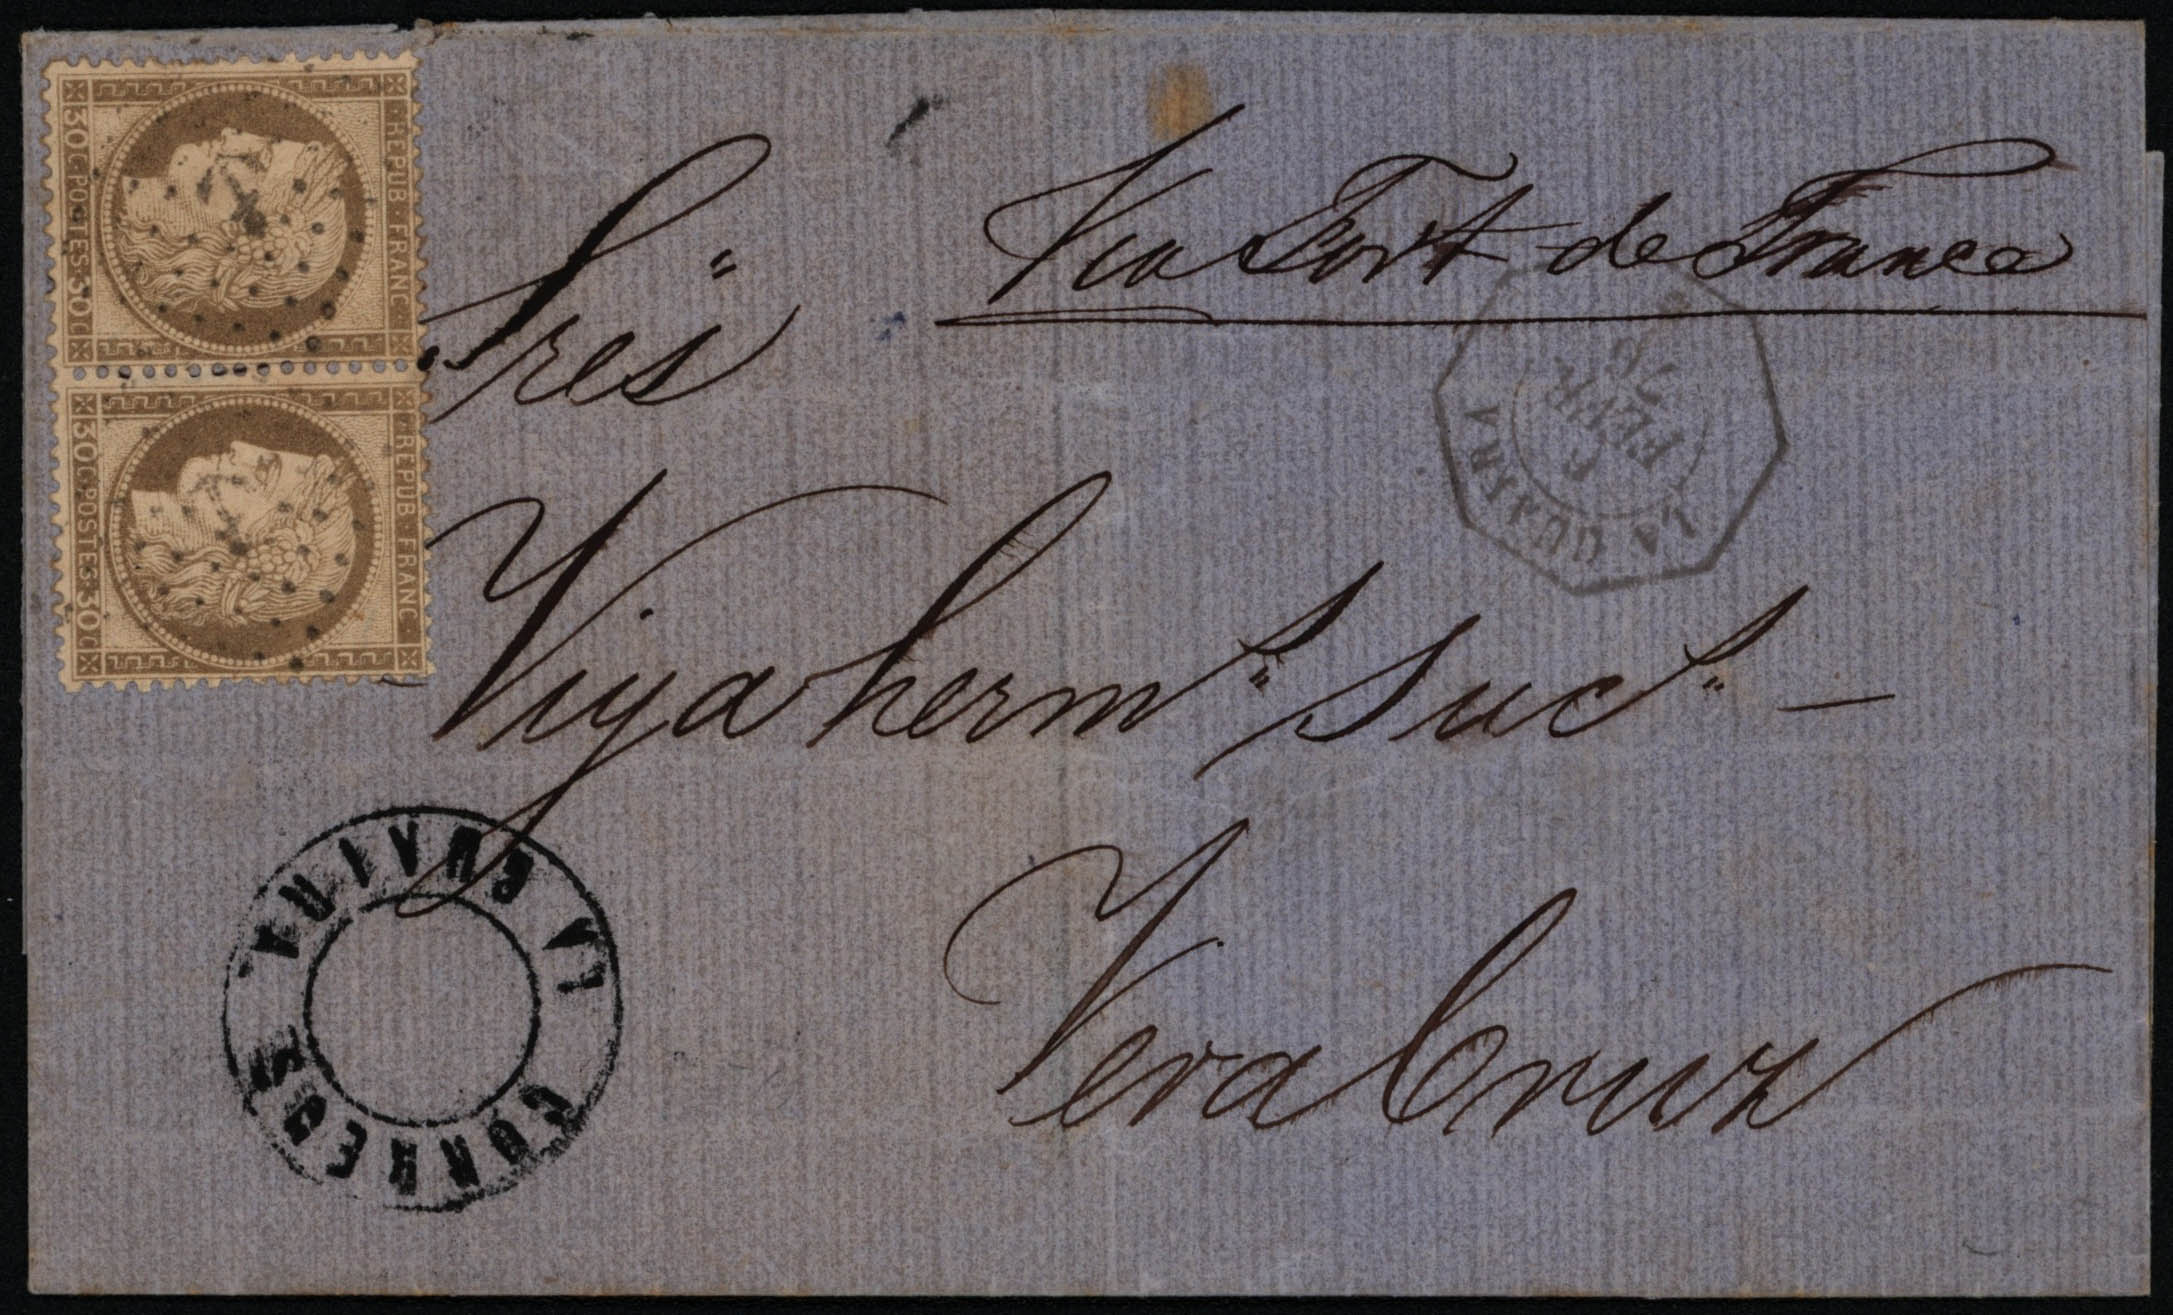 REPUB·FRANC·
30C·POSTES·30C
REPUB·FRANC·
30C·POSTES·30C
Via Fort de France
Sres
Viya herms Sucs —
Vera Cruz
LA GUAYRA
6
FEVR.
76
LA GUAIRA
CORREOS